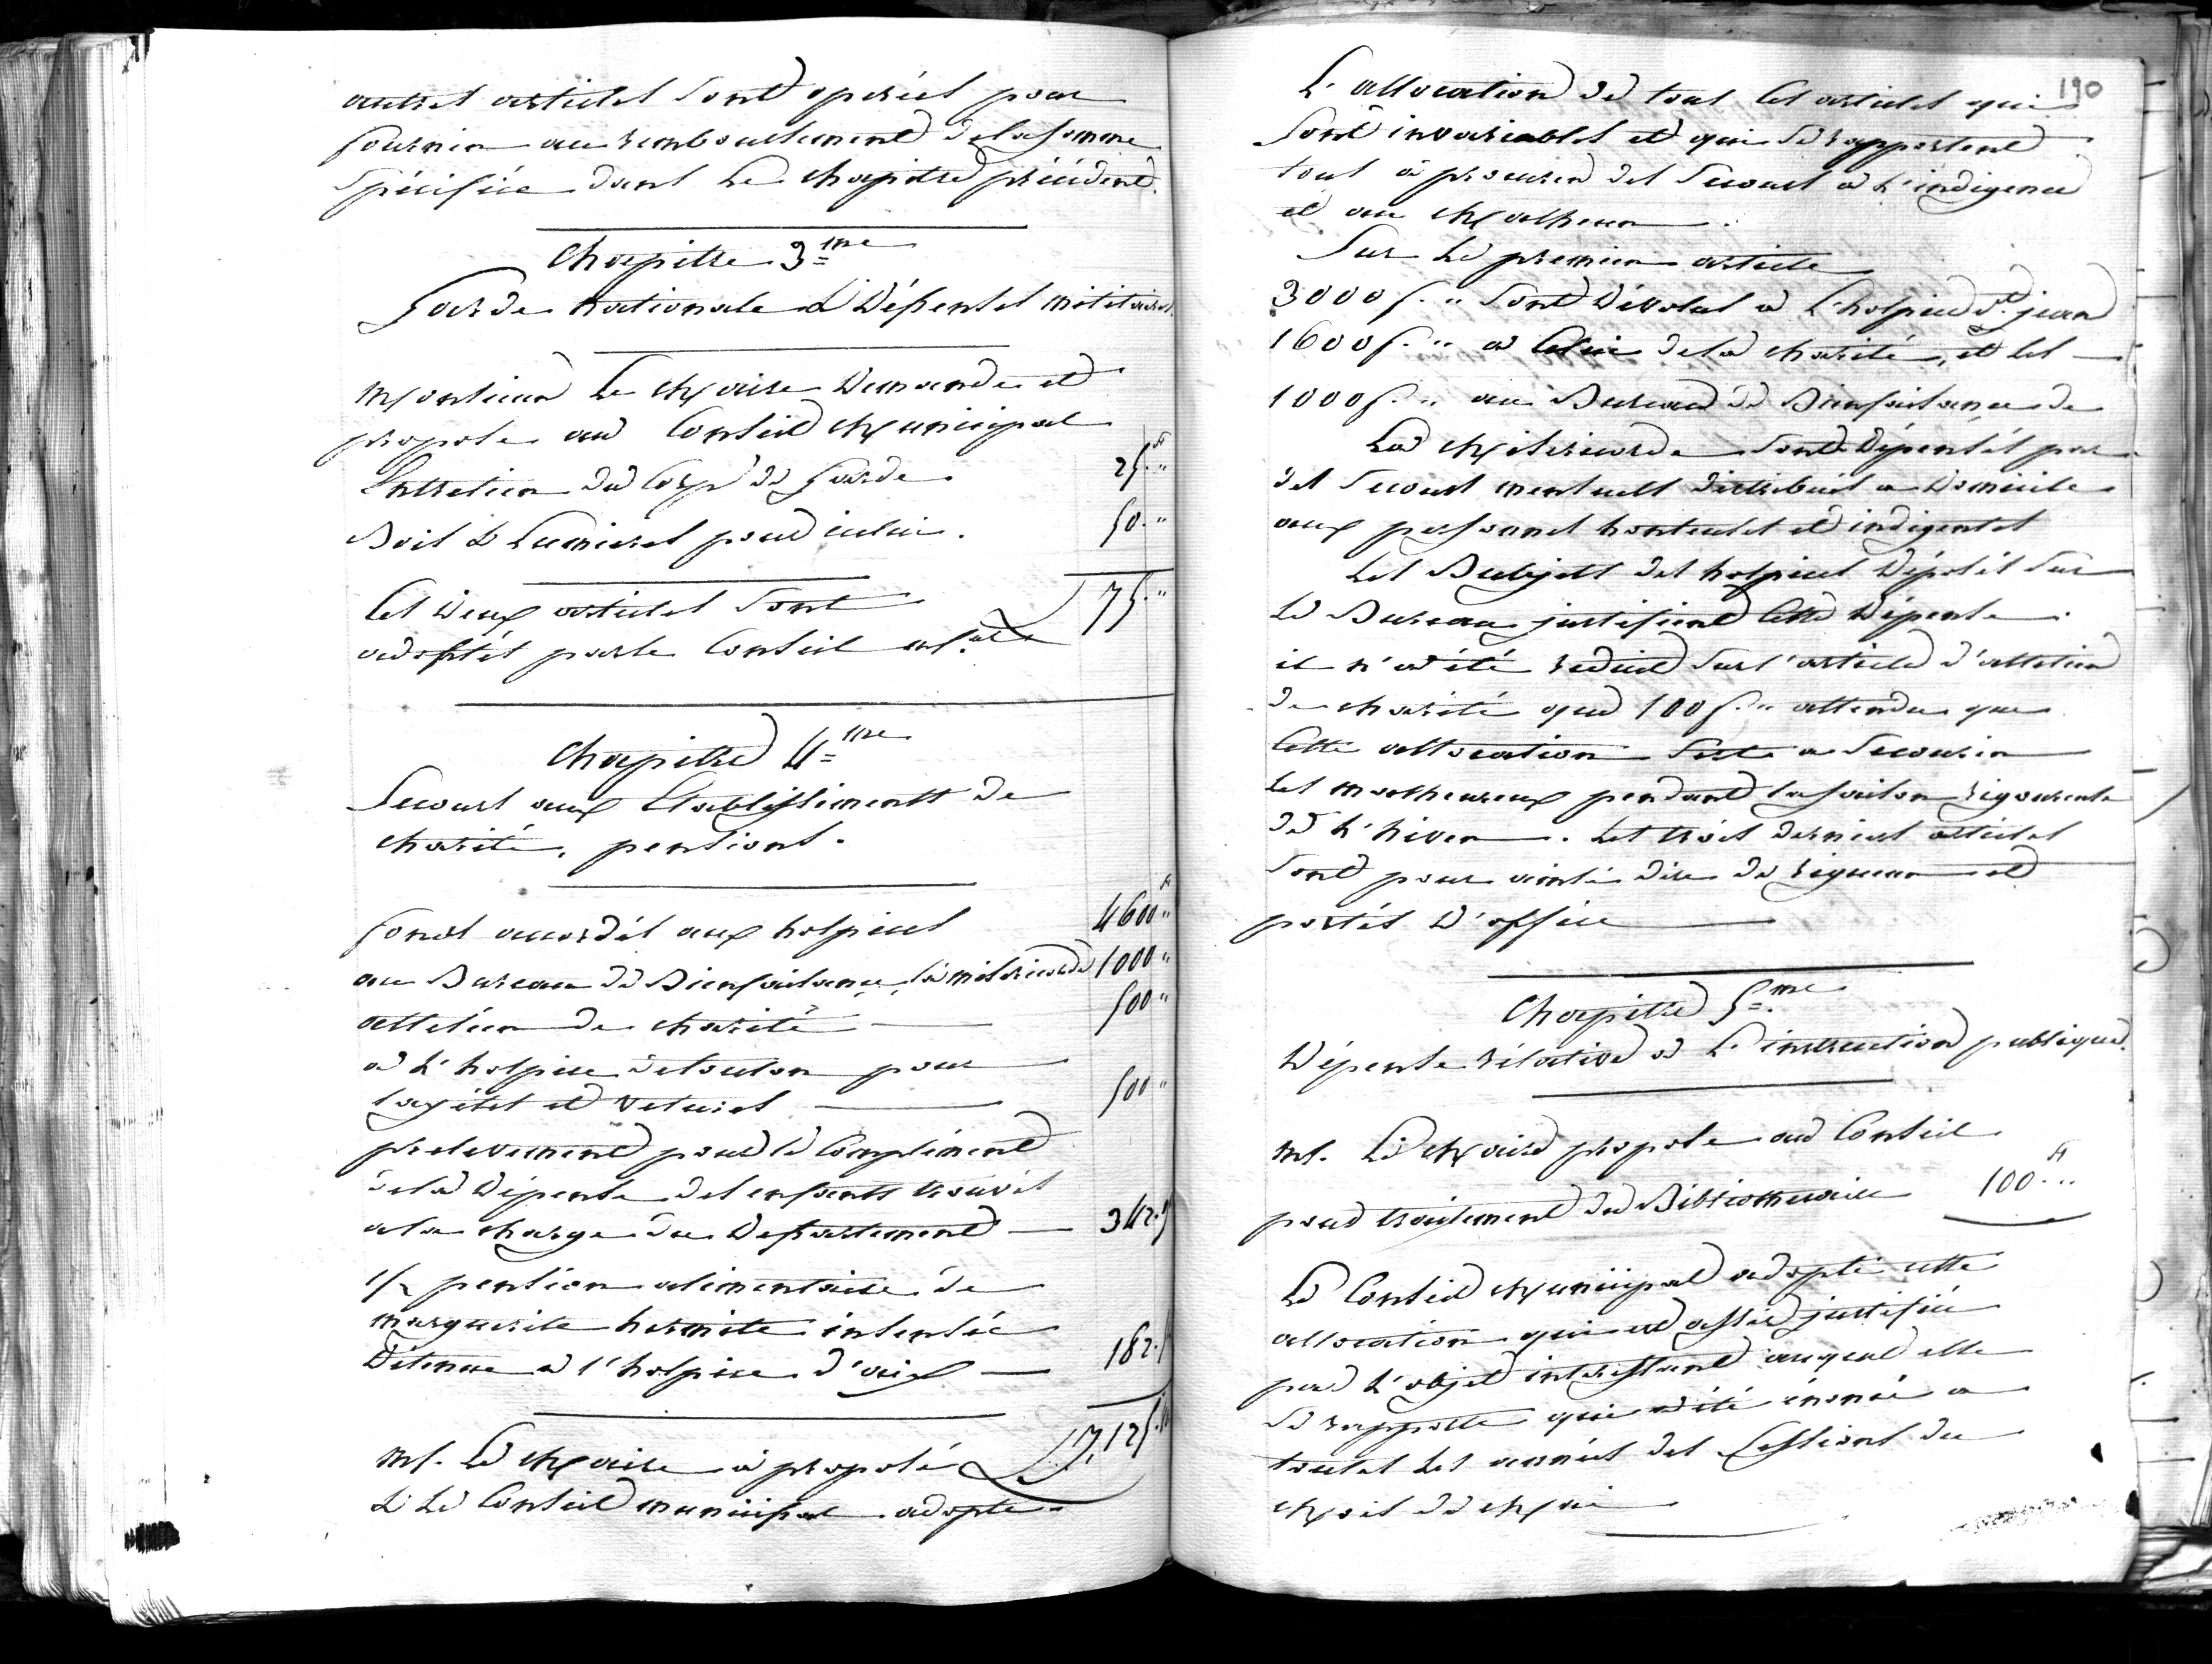 autres articles sont opérées pour
fournir au remboursement de la somme
spécifiée dans le chapitre précédent.
Chapitre 3=me
Garde nationale & Dépenses militaires
Monsieur Le Maire demande et
propose au Conseil Municipal
Entretien du Corps de Garde 25.f"
Bois & Lumieres pour icelui. 50."
75."
Ces deux articles sont
adoptés par le Conseil
Chapitre 4=me
Secours aux Etablissements de
charité, pensions.
fonds accordés aux hospices 4600f"
au Bureau de Bienfaisance, la misericorde 1000"
attelier de charité 500"
a L'hospice de toulon pour
500"
prelevement pour le Complément
de la Dépense des enfants trouvés
a la charge du Departement 342.
1/2 pension alimentaire de
marguerite hermite insensée
Détenue a l'hospice d'aix 182.
7,125.
Mr. Le Maire a proposé
& Le Conseil municipal adopte
190
L'allocation de tous les articles qui
sont invariables et qui se rapportent
tous à procurer des secours a L'indigence
et au Malheur.
Sur Le premier article
3000f." sont dévolus a L'hospice St. jean
1600f." a Celui de la charité, et les
1000f." au Bureau de Bienfaisance de
La Misericorde sont dépensés par
des secours mensuels distribués a Domicile
aux personnes honteuses et indigentes
Les Budjets des hospices déposés sur
Le Bureau justifient cette Dépense.
il n'a été reduit sur l'article d'attelier
de charité que 100f." attendu que
Cette allocation sert a secourir
les malheureux pendant la saison rigoureuse
de L'hiver. Les trois derniers articles
sont pour ainsi dire de rigueur et
portés D'office
Chapitre 5=me
Dépense rélative a L'instruction publique.
Mr. Le Maire propose au Conseil
pour traitement du Bibliothecaire 100.f"
Le Conseil Municipal adopte cette
allocation qui est assez justifiée
par L'objet interessant auquel elle
se rapporte qui a été énoncé a
toutes les années des Sessions du
Mois de Mai